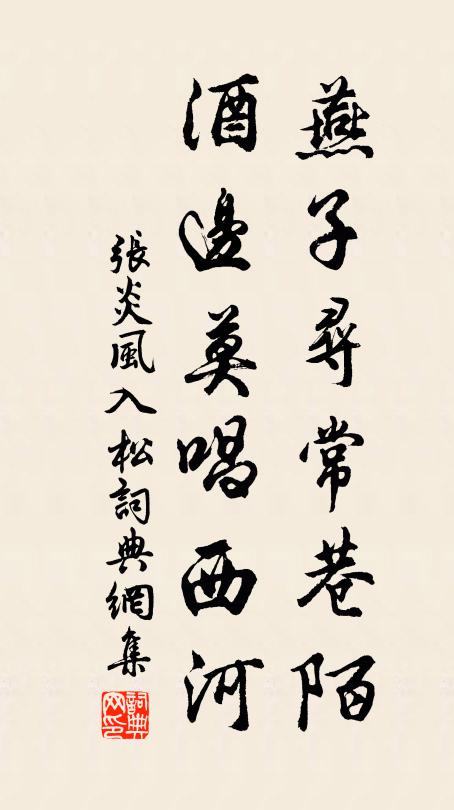 燕子尋常巷陌
酒邊莫唱西河
張炎風入松詞典網集
詞典網印